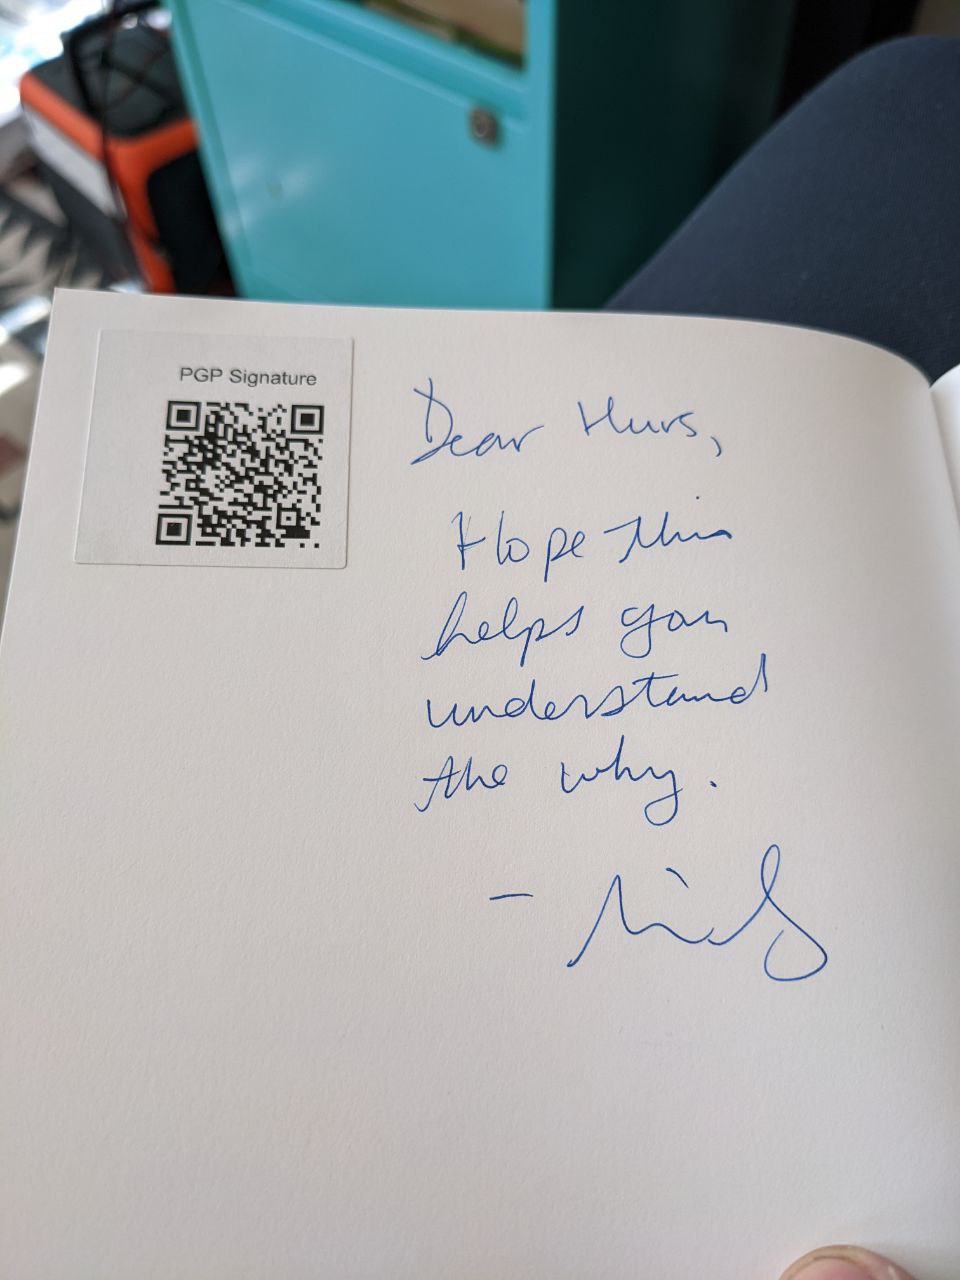 PGP Signature
Dear Hurs,
Hope this
helps you
understand
the why.